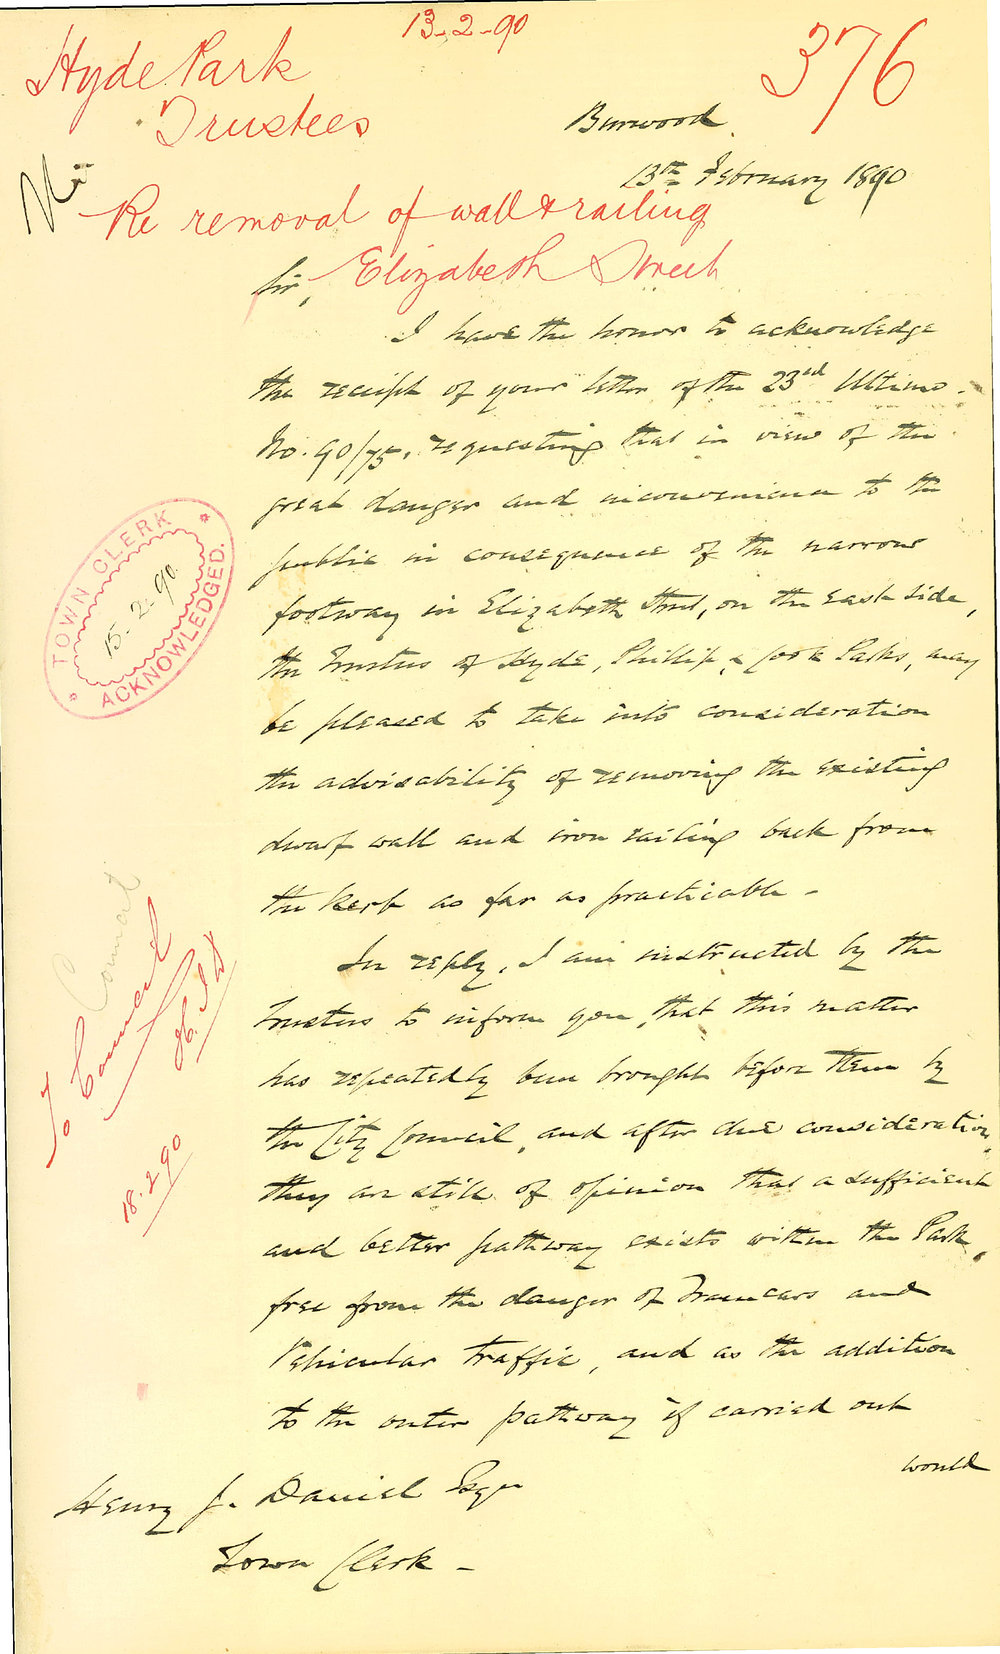 13-2-90
Hyde Park
Trustees
376
Burwood
13th February 1890
Re removal of wall & railing
Elizabeth Street
Sir,
I have the honor to acknowledge
the receipt of your letter of the 23rd Ultimo -
No. 90/75, requesting that in view of the
great danger and inconvenience to the
public in consequence of the narrow
footway in Elizabeth Street, on the East Side,
the Trustees of Hyde, Phillip, & Cook Parks, may
be pleased to take into consideration
the advisability of removing the existing
dwarf wall and iron railing back from
the Kerb as far as practicable -
In reply, I am instructed by the
Trustees to inform you, that this matter
has repeatedly been brought before them by
the City Council, and after due consideration,
they are still of opinion that a sufficient
and better pathway exists within the Park,
free from the danger of Tramcars and
Vehicular traffic, and as the addition
to the outer pathway if carried out
would
Henry J. Daniel Esqr
Town Clerk -
TOWN CLERK
15-2-90
ACKNOWLEDGED.
Council
To Council
H.J.D
18.2.90